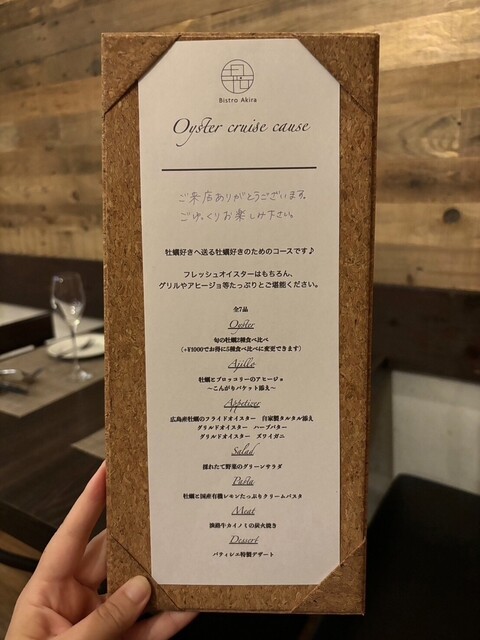 Bistro Akira
Oyster cruise cause
ご来店ありがとうございます。
ごゆっくりお楽しみ下さい。
牡蠣好きへ送る牡蠣好きのためのコースです♪
フレッシュオイスターはもちろん、
グリルやアヒージョ等たっぷりとご堪能ください。
全7品
Oyster
旬の牡蠣2種食べ比べ
(+¥1000でお得に5種食べ比べに変更できます)
Ajillo
牡蠣とブロッコリーのアヒージョ
～こんがりバケット添え～
Appetizer
広島産牡蠣のフライドオイスター 自家製タルタル添え
グリルドオイスター ハーブバター
グリルドオイスター ズワイガニ
Salad
採れたて野菜のグリーンサラダ
Pasta
牡蠣と国産有機レモンたっぷりクリームパスタ
Meat
淡路牛カイノミの炭火焼き
Dessert
パティシエ特製デザート